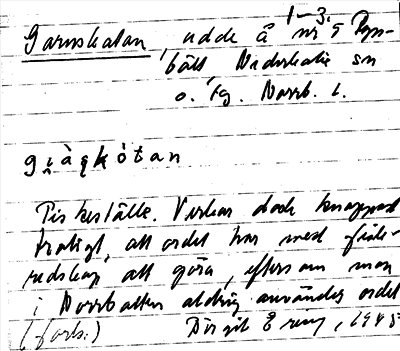 Garnskatan, udde å nr 5 Fors-
1-3.
träsk, Nederkalix sn
o. tg. Norrb. l.
gi̯àɳkótan
Fiskeställe. Verkar dock knappast
troligt, att ordet har med fiske-
redskap att göra, eftersom man
i Norrbotten aldrig använder ordet
(forts.) 1945